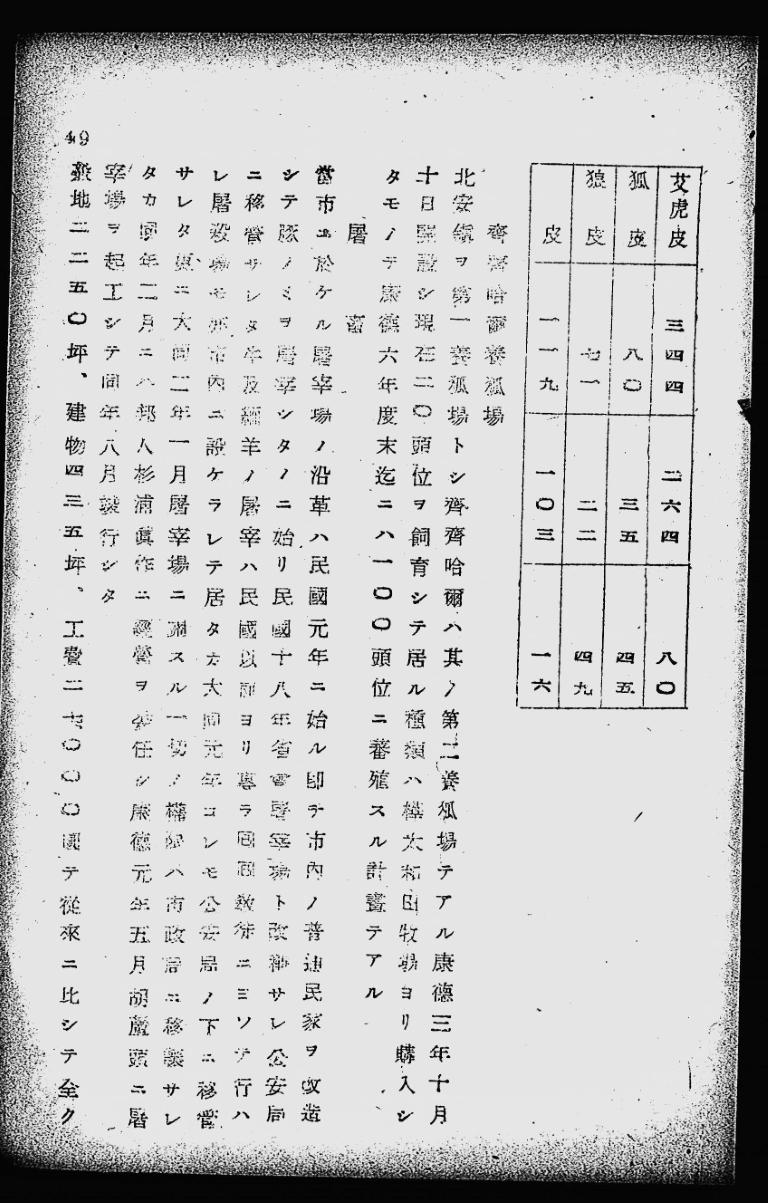 艾虎皮 三四四 二六四 八〇
狐皮 八〇 三五 四五
狼皮 七一 二二 四九
皮 一一九 一〇三 一六
齊齊哈爾養狐場
北安鎮ヲ第一養狐場トシ齊齊哈爾ハ其ノ第二養狐場テアル康德三年十月
十日開設シ現在二〇頭位ヲ飼育シテ居ル種類ハ樺太和田牧場ヨリ購入シ
タモノテ康德六年度末迄ニハ一〇〇頭位ニ蕃殖スル計畫テアル
屠畜
當市ニ於ケル屠宰場ノ沿革ハ民國元年ニ始ル卽チ市內ノ普通民家ヲ改造
シテ豚ノミヲ屠宰シタノニ始リ民國十八年省會屠宰場ト改稱サレ公安局
ニ移管サレタ牛及緬羊ノ屠宰ハ民國以前ヨリ專ラ回回敎徒ニヨツテ行ハ
レ屠殺場モ亦市內ニ設ケラレテ居タカ大同元年コレモ公安局ノ下ニ移管
サレタ更ニ大同二年一月屠宰場ニ關スル一切ノ權限ハ市政局ニ移讓サレ
タカ同年二月ニハ邦人杉浦眞作ニ經營ヲ委任シ康德元年五月胡蘆頭ニ屠
宰場ヲ起工シテ同年八月竣行シタ
敷地二二五〇坪、建物四三五坪、工費二七〇〇〇圓テ從來ニ比シテ全ク
49